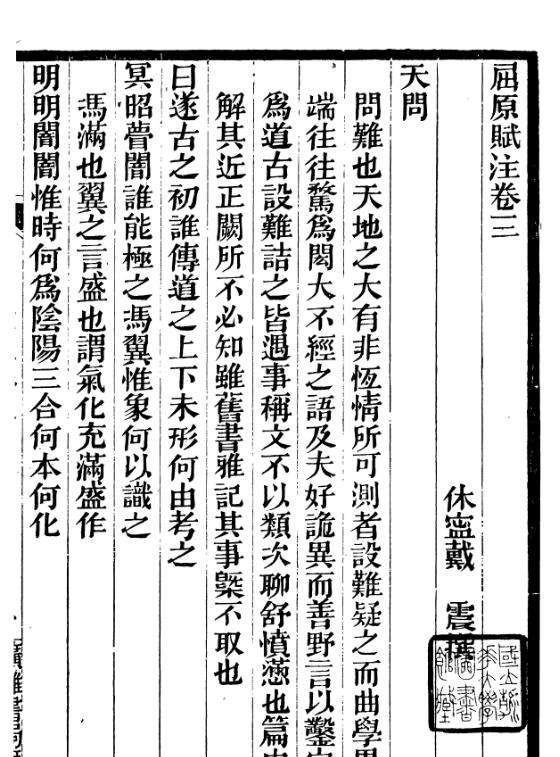 屈原賦注卷三
休寧戴 震撰
天問
問難也天地之大有非恆情所可測者設難疑之而曲學
端往往騖爲閎大不經之語及夫好詭異而善野言以鑿
爲道古設難詰之皆遇事稱文不以類次聊舒憤懣也篇
解其近正闕所不必知雖舊書雅記其事槩不取也
曰遂古之初誰傳道之上下未形何由考之
冥昭瞢闇誰能極之馮翼惟象何以識之
馮滿也翼之言盛也謂氣化充滿盛作
明明闇闇惟時何爲陰陽三合何本何化